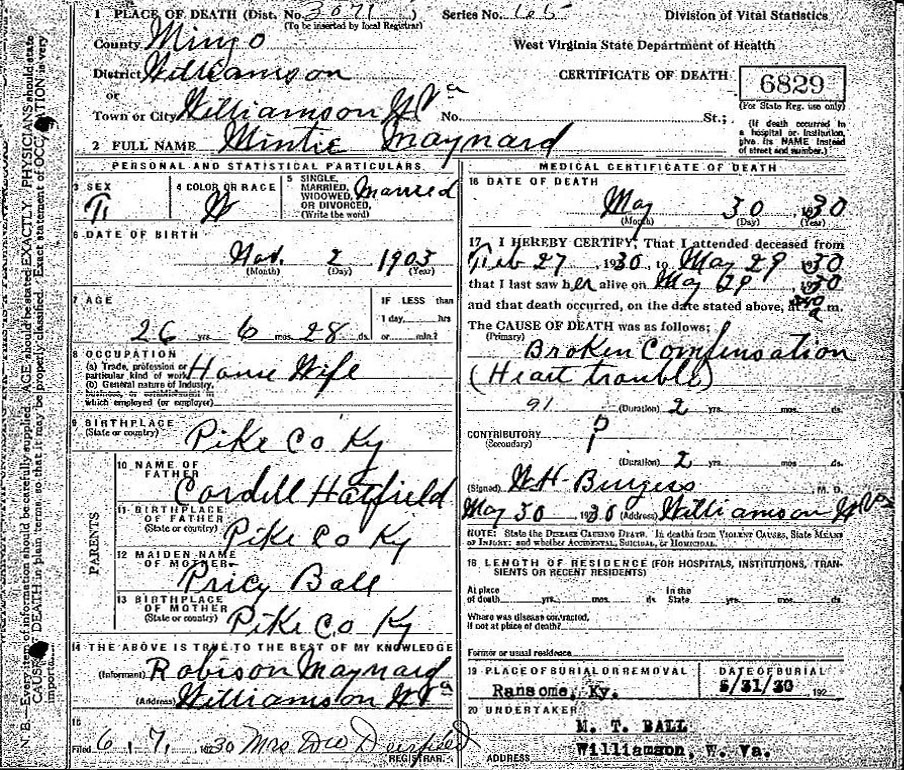 1 PLACE OF DEATH (Dist. No. 3071) Series No. 165 Division of Vital Statistics
(To be inserted by local Registrar)
County Mingo West Virginia State Department of Health
District Williamson CERTIFICATE OF DEATH 6829
or (For State Reg. use only)
Town or City Williamson W Va No. St.;
(If death occurred in a hospital or institution, give its NAME instead of street and number.)
2 FULL NAME Mintie Maynard
PERSONAL AND STATISTICAL PARTICULARS
3 SEX F
4 COLOR OR RACE W
5 SINGLE, MARRIED, WIDOWED, OR DIVORCED, (Write the word) Married
6 DATE OF BIRTH
Nov. 2 1903
(Month) (Day) (Year)
7 AGE
26 yrs. 6 mos. 28 ds.
IF LESS than
1 day, hrs
or min.?
8 OCCUPATION
(a) Trade, profession or
particular kind of work House Wife
(b) General nature of Industry,
business, or establishment in
which employed (or employer)
9 BIRTHPLACE
(State or country) Pike Co Ky
PARENTS
10 NAME OF
FATHER Cordell Hatfield
11 BIRTHPLACE
OF FATHER
(State or country) Pike Co Ky
12 MAIDEN NAME
OF MOTHER Pricy Ball
13 BIRTHPLACE
OF MOTHER
(State or country) Pike Co Ky
14 THE ABOVE IS TRUE TO THE BEST OF MY KNOWLEDGE
(Informant) Robison Maynard
(Address) Williamson W Va
15
Filed 6, 7, 1930 Mrs
REGISTRAR.
MEDICAL CERTIFICATE OF DEATH
16 DATE OF DEATH
May 30 1930
(Month) (Day) (Year)
17 I HEREBY CERTIFY, That I attended deceased from
Feb 27 1930, to May 29 1930
that I last saw her alive on May 29 1930
and that death occurred, on the date stated above, at a m.
The CAUSE OF DEATH was as follows:
(Primary) Broken Compensation
(Heart trouble)
91 (Duration) 2 yrs. mos. ds.
CONTRIBUTORY
(Secondary)
(Duration) 2 yrs. mos. ds.
(Signed) W H Burgess M. D.
May 30 1930 (Address) Williamson W Va
NOTE: State the DISEASE CAUSING DEATH. In deaths from VIOLENT CAUSES, State MEANS
OF INJURY: and whether ACCIDENTAL, SUICIDAL, or HOMICIDAL.
18 LENGTH OF RESIDENCE (FOR HOSPITALS, INSTITUTIONS, TRAN-
SIENTS OR RECENT RESIDENTS)
At place of death yrs. mos. ds. In the State yrs. mos. ds.
Where was disease contracted,
if not at place of death?
Former or usual residence
19 PLACE OF BURIAL OR REMOVAL DATE OF BURIAL
Ransome, Ky. 5/31/30 192
20 UNDERTAKER
M. T. BALL
ADDRESS Williamson, W. Va.
N. B.—Every item of information should be carefully supplied. AGE should be stated EXACTLY. PHYSICIANS should state
CAUSE OF DEATH in plain terms so that it may be properly classified. Exact statement of OCCUPATION is very
important.